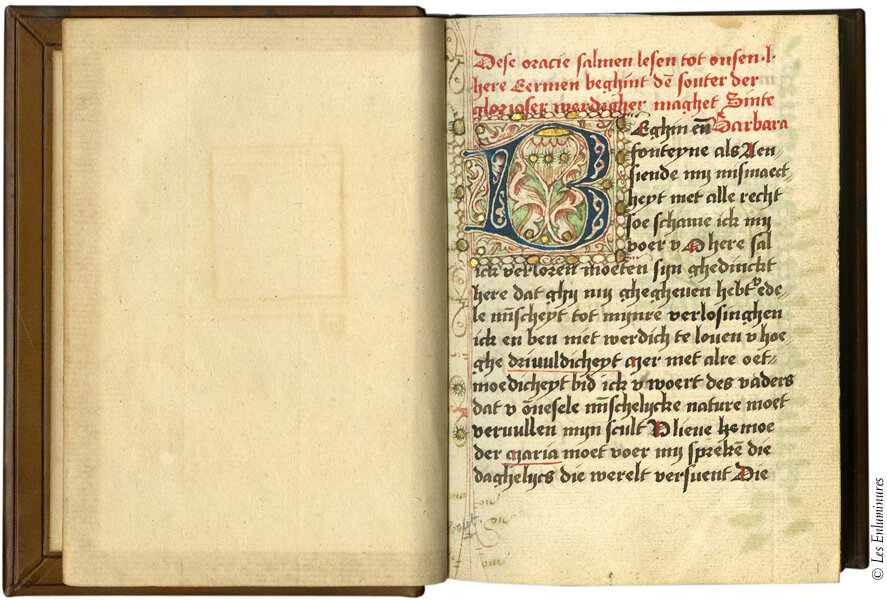 Dese oracie salmen lesen tot onsen l.
here Eermen beghint dē souter der
glorioser werdigher maghet Sinte
Barbara
BEghin eñ
fonteyne als Aen-
siende my mismaect-
heyt met alle recht
soe schame ick my
voer v O here sal
ick verloren moeten syn ghedinckt
here dat ghy my ghegheuen hebt v ede-
le m̄scheyt tot mynre verlosinghen
ick en ben niet werdich te louen v hoe-
ghe driuuldicheyt Mer met alre oet-
moedicheyt bid ick v woert des vaders
dat v ōnesele m̄schelycke nature moet
veruullen myn scult O lieue he moe
der maria moet voer my sprekē die
daghelycs die werelt versuent Die
© Les Enluminures